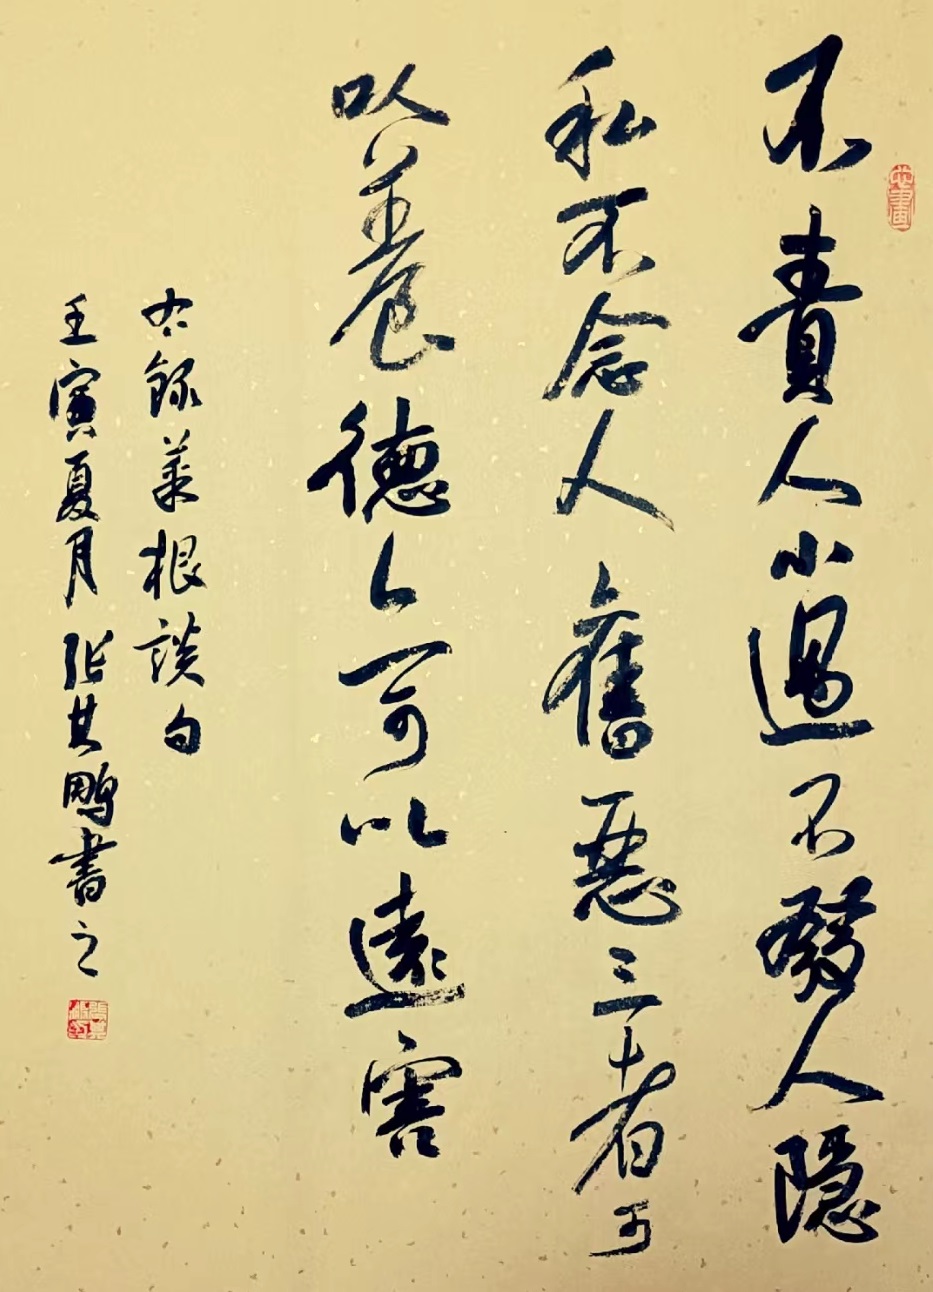 不責人小過不發人隱
私不念人舊惡三者可
以養德亦可以遠害
右錄菜根談句
壬寅夏月張其鵬書之